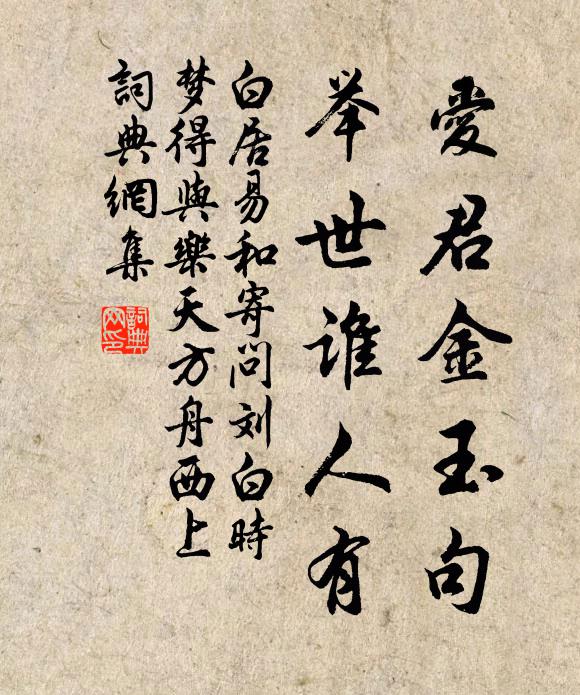 愛君金玉句
举世誰人有
白居易和寄问刘白時
梦得與樂天方舟西上
詞典網集
詞典
网印